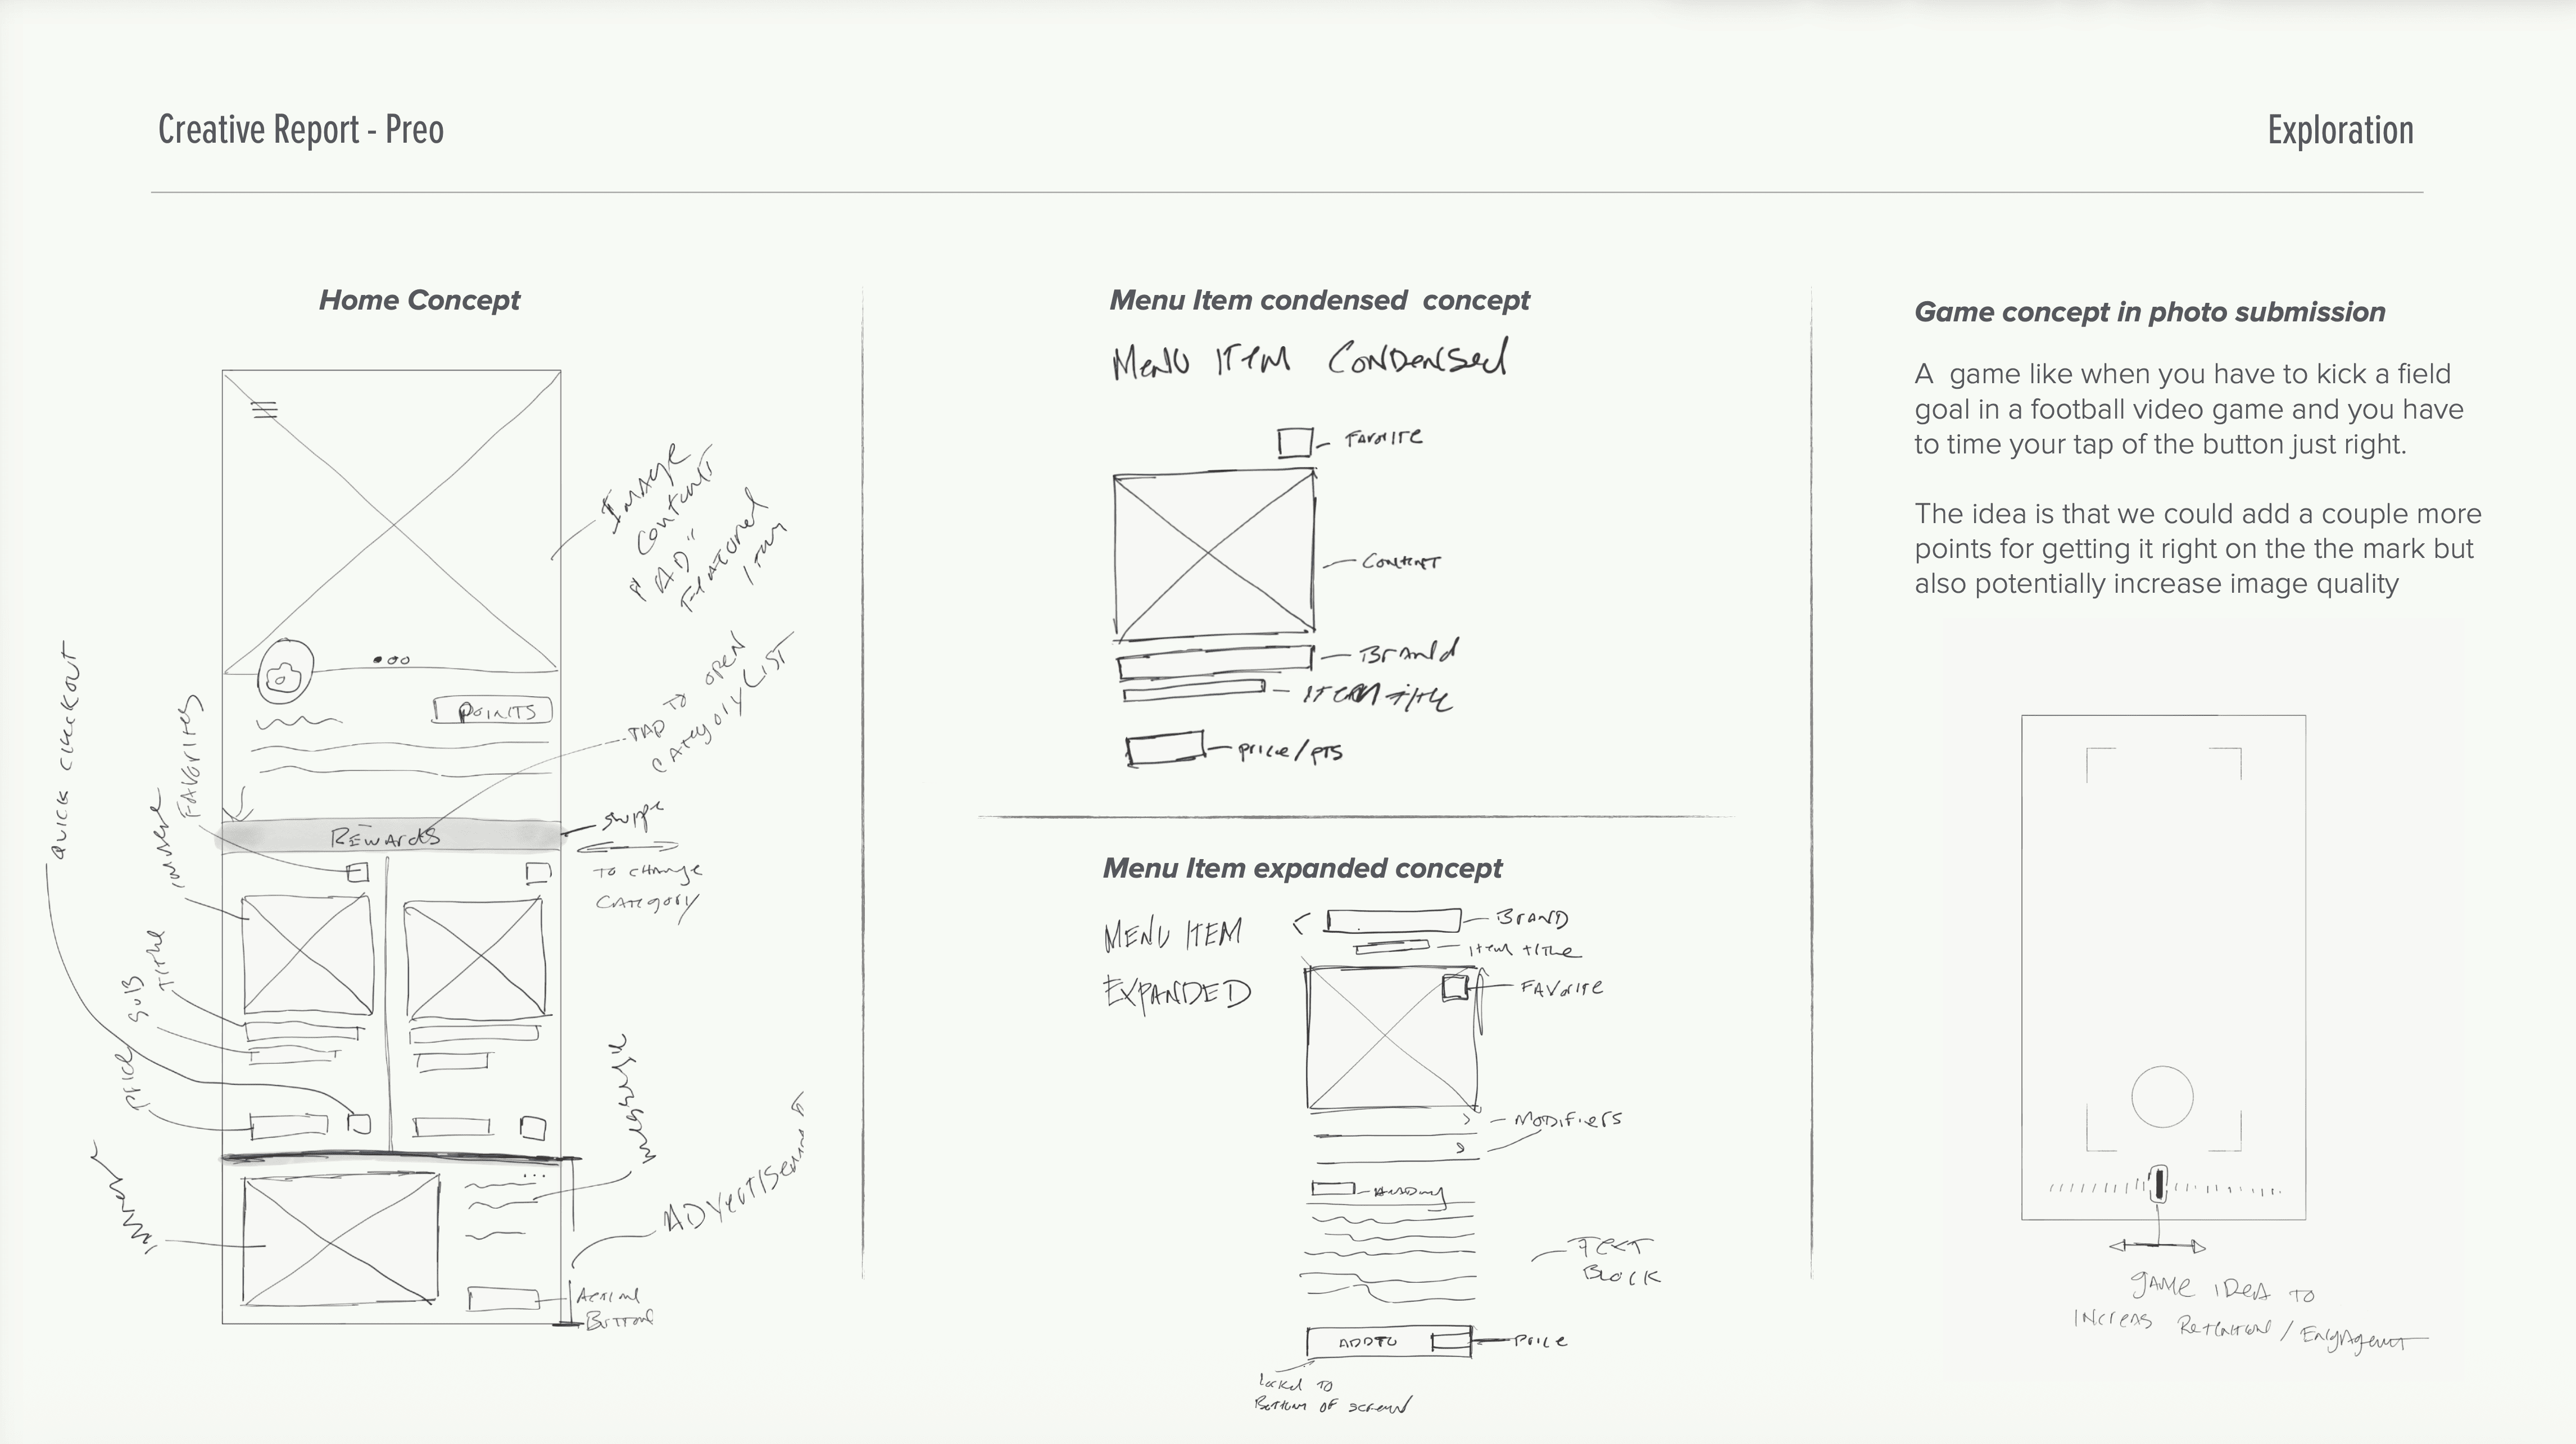 Creative Report - Preo
Exploration
Home Concept
Image
Content
"AD"
Featured
Item
POINTS
TAP TO OPEN
CATEGORY LIST
QUICK CHECKOUT
FAVORITES
Rewards
swipe
TO CHANGE
CATEGORY
TITLE
SUB
PRICE
message
Action
Button
Menu Item condensed  concept
Menu ITEM Condensed
Favorite
Content
Brand
ITEM title
price/pts
Menu Item expanded concept
MENU ITEM
EXPANDED
BRAND
Item title
FAVorite
Modifiers
TEXT
BLOCK
ADD TO
Price
Locked TO
Bottom OF screen
Game concept in photo submission
A  game like when you have to kick a field
goal in a football video game and you have
to time your tap of the button just right.
The idea is that we could add a couple more
points for getting it right on the the mark but
also potentially increase image quality
game IDEA TO
INCREAS Retention / Engagement